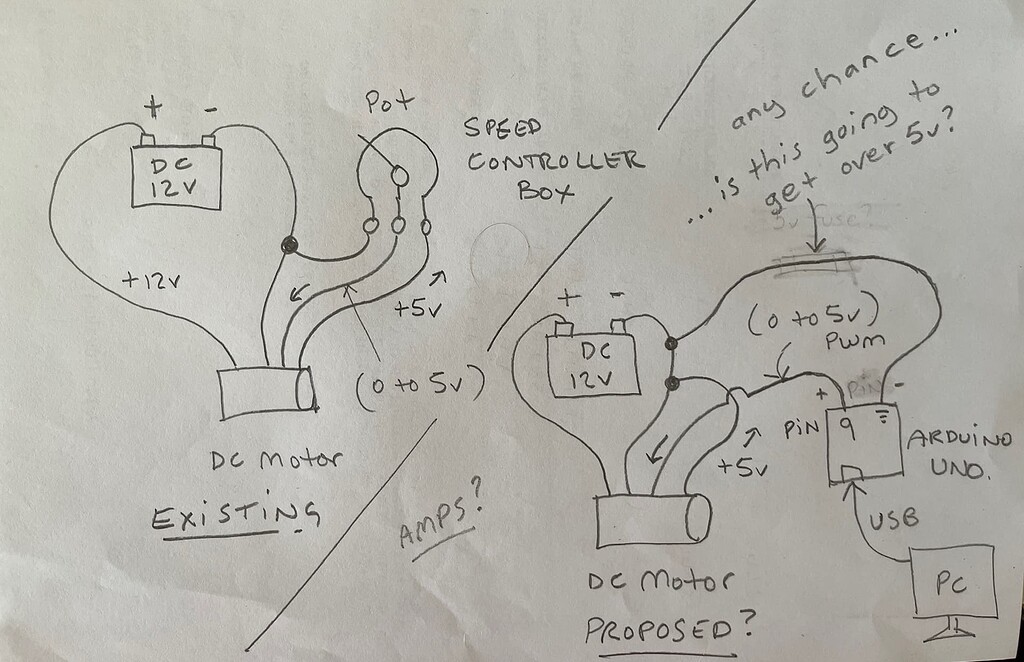 + -
DC
12V
+12v
Pot
SPEED
CONTROLLER
BOX
+5v
(0 to 5v)
DC motor
EXISTING
AMPS?
any chance...
...is this going to
get over 5v?
5v fuse?
+ -
DC
12V
(0 to 5v)
PWM
+5v
+ PiN -
PiN 9
ARDUINO
UNO.
USB
PC
DC motor
PROPOSED?